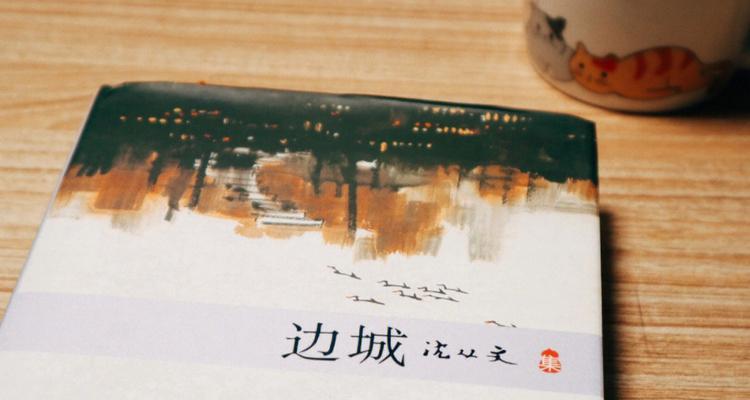 边城 沈从文 集